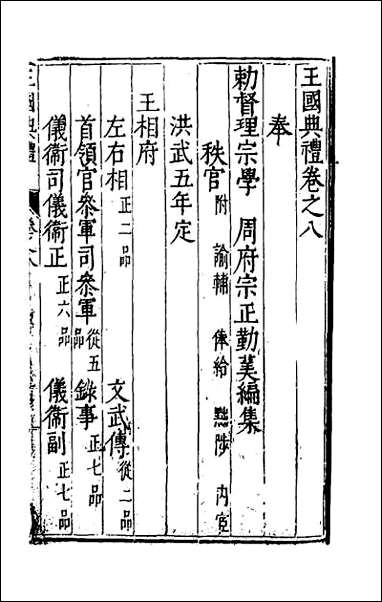 王國典禮卷之八
奉
勅督理宗學 周府宗正勤羙編集
秩官 附 諭輔 俸給 黜陟 内宦
洪武五年定
王相府
左右相 正二品 文武傅 從二品
首領官叅軍司叅軍 從五品 錄事 正七品
儀衛司儀衛正 正六品 儀衛副 正七品
王國典禮 卷八